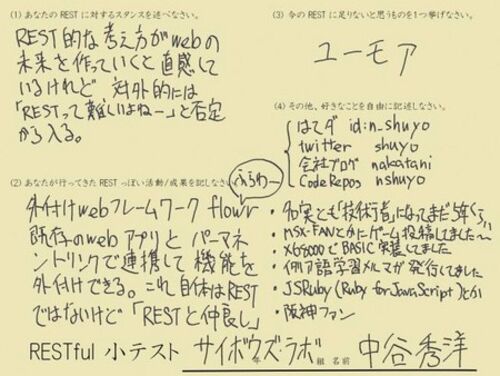 (1) あなたの REST に対するスタンスを述べなさい。
REST的な考え方がwebの
未来を作っていくと直感して
いるけれど 対外的には
「RESTって難しいよねー」と否定
から入る。
(2) あなたが行ってきた REST っぽい活動/成果を記しなさい。
ふらわー
外付けwebフレームワーク flowr
既存のwebアプリと パーマネ
ントリンクで連携して 機能を
外付けできる。これ自体はREST
ではないけど「RESTと仲良し」
(3) 今の REST に足りないと思うものを1つ挙げなさい。
ユーモア
(4) その他、好きなことを自由に記述しなさい。
はてダ id:n_shuyo
twitter shuyo
会社ブログ nakatani
CodeRepos nshuyo
・名実とも「技術者」になってまだ5年くらい
・MSX-FANとかにゲーム投稿してました〜
・X68000でBASIC実装してました
・イタリア語学習メルマガ発行してました
・JSRuby (Ruby for JavaScript) とか
・阪神ファン
RESTful 小テスト サイボウズ・ラボ 年 組 名前 中谷秀洋